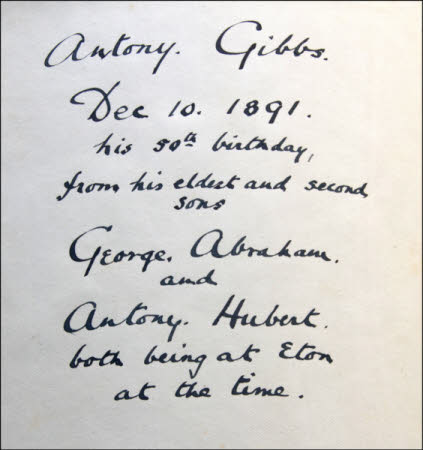 Antony. Gibbs.
Dec 10. 1891.
his 50th birthday,
from his eldest and second
sons
George. Abraham.
and
Antony. Hubert.
both being at Eton
at the time.